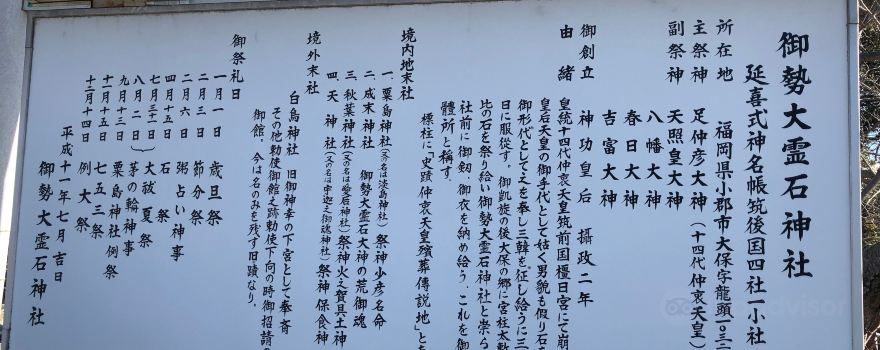 御勢大霊石神社
延喜式神名帳筑後国四社一小社
所在地　福岡県小郡市大保字龍頭一〇三二
主祭神　足仲彦大神（十四代仲哀天皇）
副祭神　天照皇大神
八幡大神
春日大神
吉富大神
御創立　神功皇后　摂政二年
由緒　皇統十四代仲哀天皇筑前国橿日宮にて崩
皇后天皇の御手代として姑く男貌も仮り石
御形代として之を奉じ三韓を征し給うに三
日に服従す。御凱旋の後大保の郷に宮柱太敷
此の石を祭り給い御勢大霊石神社と崇
社前に御剱、御衣を納め給う、これを御
體所と称す。
標柱に「史蹟仲哀天皇殯葬傳説地」と
境内地末社
一、粟島神社（又の名は淡島神社）祭神少彦名命
二、成末神社　御勢大霊石大神の荒御魂
三、秋葉神社（又の名は愛宕神社）祭神火之賀具土神
四、天神社（又の名は宇迦之御魂神社）祭神保食神
境外末社
白鳥神社　旧御神幸の下宮として奉斎
その他勅使御館之跡勅使下向の時御招請の
御館、今は名のみを残す旧蹟なり。
御祭礼日
一月一日　歳旦祭
二月三日　節分祭
二月六日　粥占い神事
四月十五日　石祭
七月三十一日　大祓夏祭
八月二日　茅の輪神事
九月十三日　粟島神社例祭
十一月十五日　七五三祭
十二月十四日　例大祭
平成十一年七月吉日
御勢大霊石神社